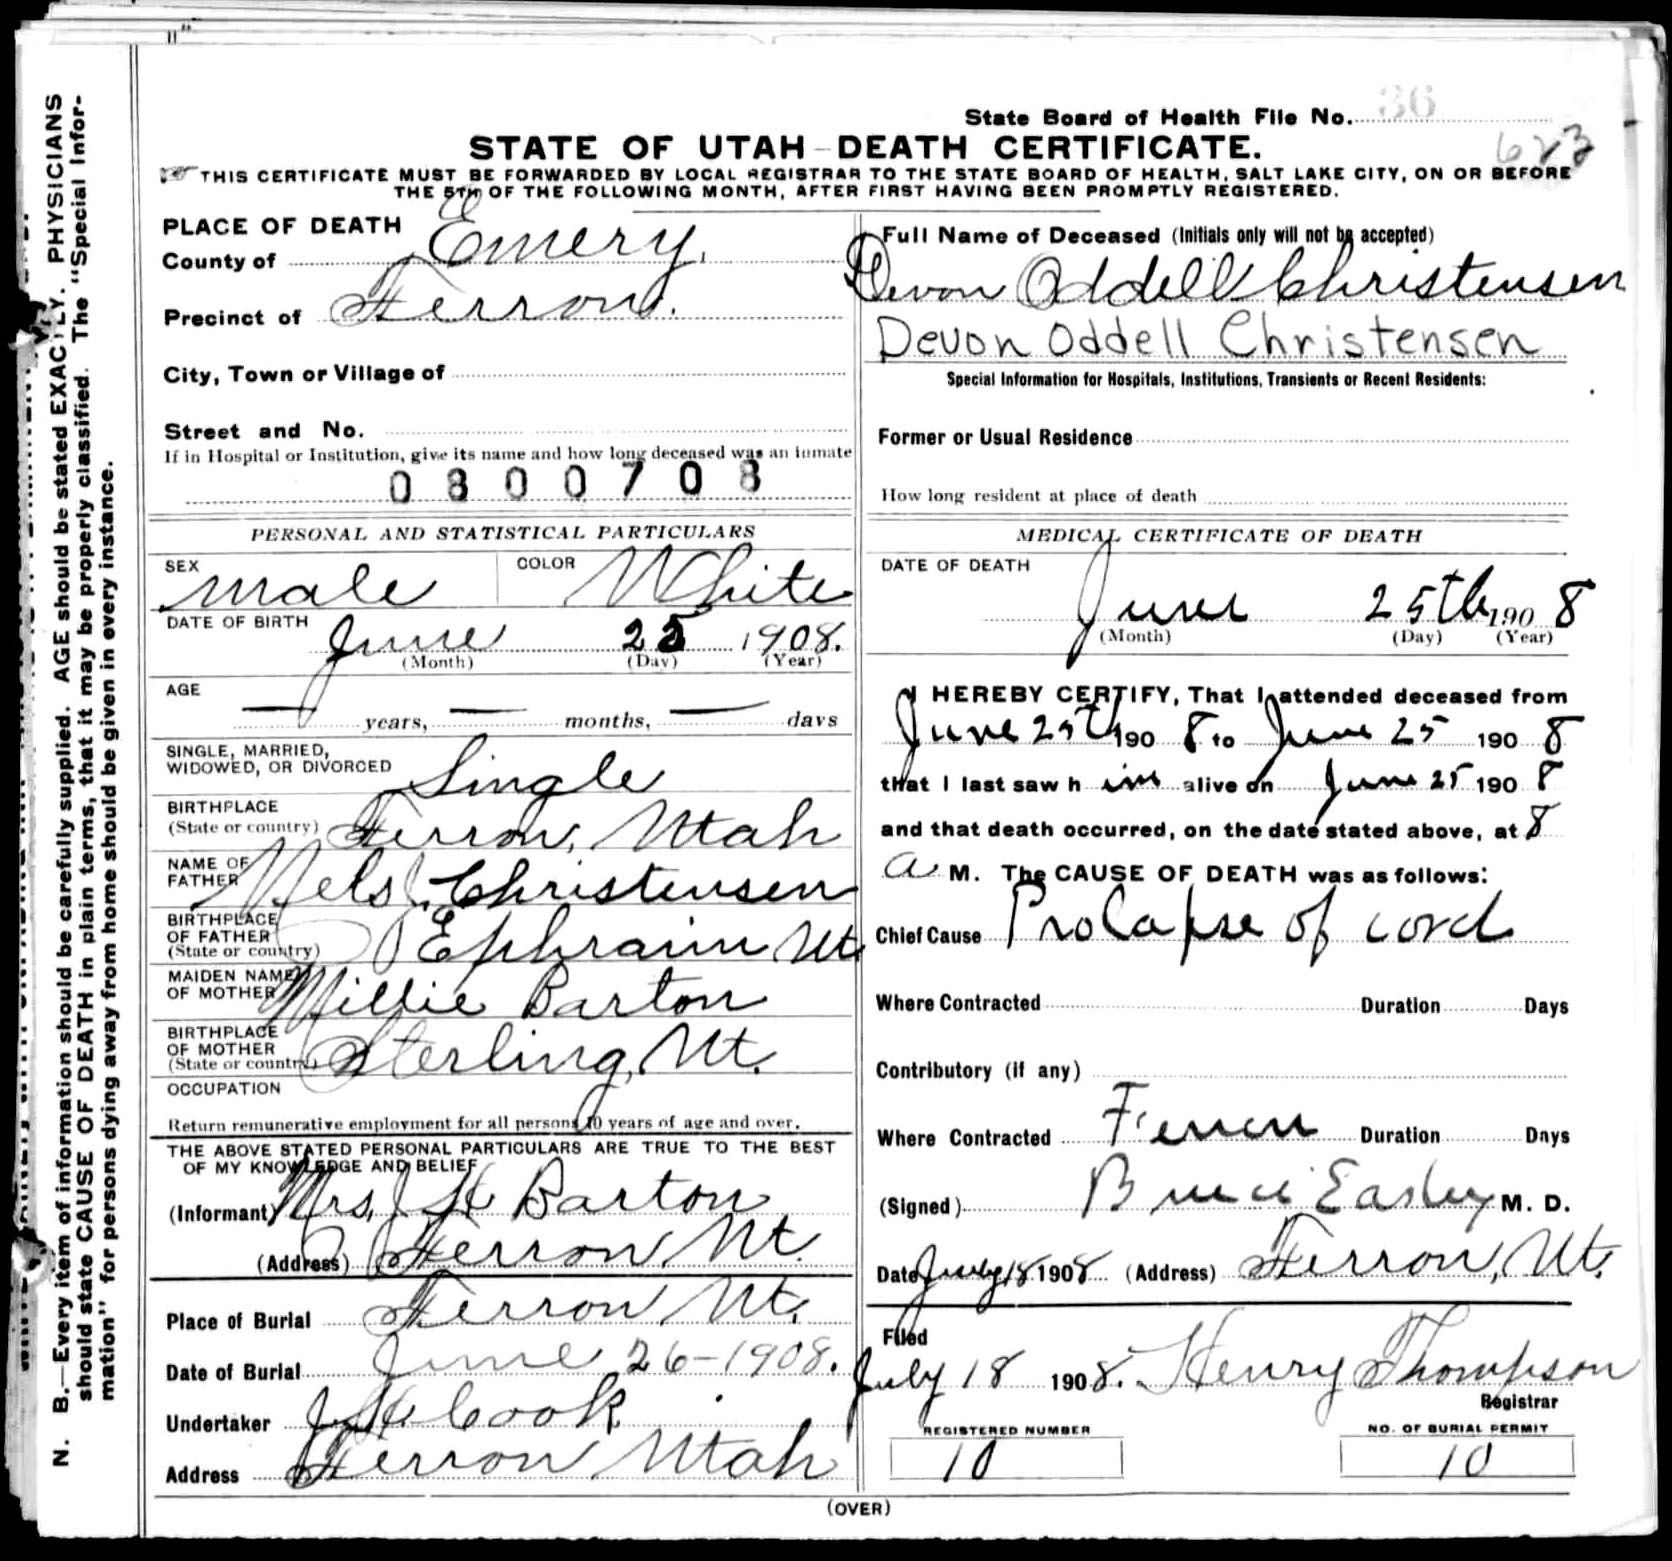 State Board of Health File No. 36
623
STATE OF UTAH—DEATH CERTIFICATE.
THIS CERTIFICATE MUST BE FORWARDED BY LOCAL REGISTRAR TO THE STATE BOARD OF HEALTH, SALT LAKE CITY, ON OR BEFORE
THE 5TH OF THE FOLLOWING MONTH, AFTER FIRST HAVING BEEN PROMPTLY REGISTERED.
PLACE OF DEATH
County of Emery.
Precinct of Ferron.
City, Town or Village of
Street and No.
If in Hospital or Institution, give its name and how long deceased was an inmate
0800708
Full Name of Deceased (Initials only will not be accepted)
Devon Oddell Christensen
Devon Oddell Christensen
Special Information for Hospitals, Institutions, Transients or Recent Residents:
Former or Usual Residence
How long resident at place of death
PERSONAL AND STATISTICAL PARTICULARS
SEX Male COLOR White
DATE OF BIRTH June 25 1908.
(Month) (Day) (Year)
AGE
— years, — months, — days
SINGLE, MARRIED,
WIDOWED, OR DIVORCED Single
BIRTHPLACE
(State or country) Ferron, Utah
NAME OF
FATHER Nels Christensen
BIRTHPLACE
OF FATHER
(State or country) Ephraim Ut.
MAIDEN NAME
OF MOTHER Millie Barton
BIRTHPLACE
OF MOTHER
(State or country) Sterling, Ut.
OCCUPATION
Return remunerative employment for all persons 10 years of age and over.
THE ABOVE STATED PERSONAL PARTICULARS ARE TRUE TO THE BEST
OF MY KNOWLEDGE AND BELIEF
(Informant) Mrs. J H Barton
(Address) Ferron Ut.
Place of Burial Ferron Ut.
Date of Burial June 26-1908.
Undertaker J H Cook
Address Ferron Utah
MEDICAL CERTIFICATE OF DEATH
DATE OF DEATH
June 25th 1908
(Month) (Day) (Year)
I HEREBY CERTIFY, That I attended deceased from
June 25th 1908 to June 25 1908
that I last saw him alive on June 25 1908
and that death occurred, on the date stated above, at 8
a M. The CAUSE OF DEATH was as follows:
Chief Cause Prolapse of cord
Where Contracted Duration Days
Contributory (if any)
Where Contracted Ferron Duration Days
(Signed) Bruce Easley M. D.
Date July 18 1908 (Address) Ferron, Ut.
Filed
July 18 1908. Henry Thompson
Registrar
REGISTERED NUMBER
10
NO. OF BURIAL PERMIT
10
(OVER)
N. B.—Every item of information should be carefully supplied. AGE should be stated EXACTLY. PHYSICIANS
should state CAUSE OF DEATH in plain terms, that it may be properly classified. The "Special Infor-
mation" for persons dying away from home should be given in every instance.